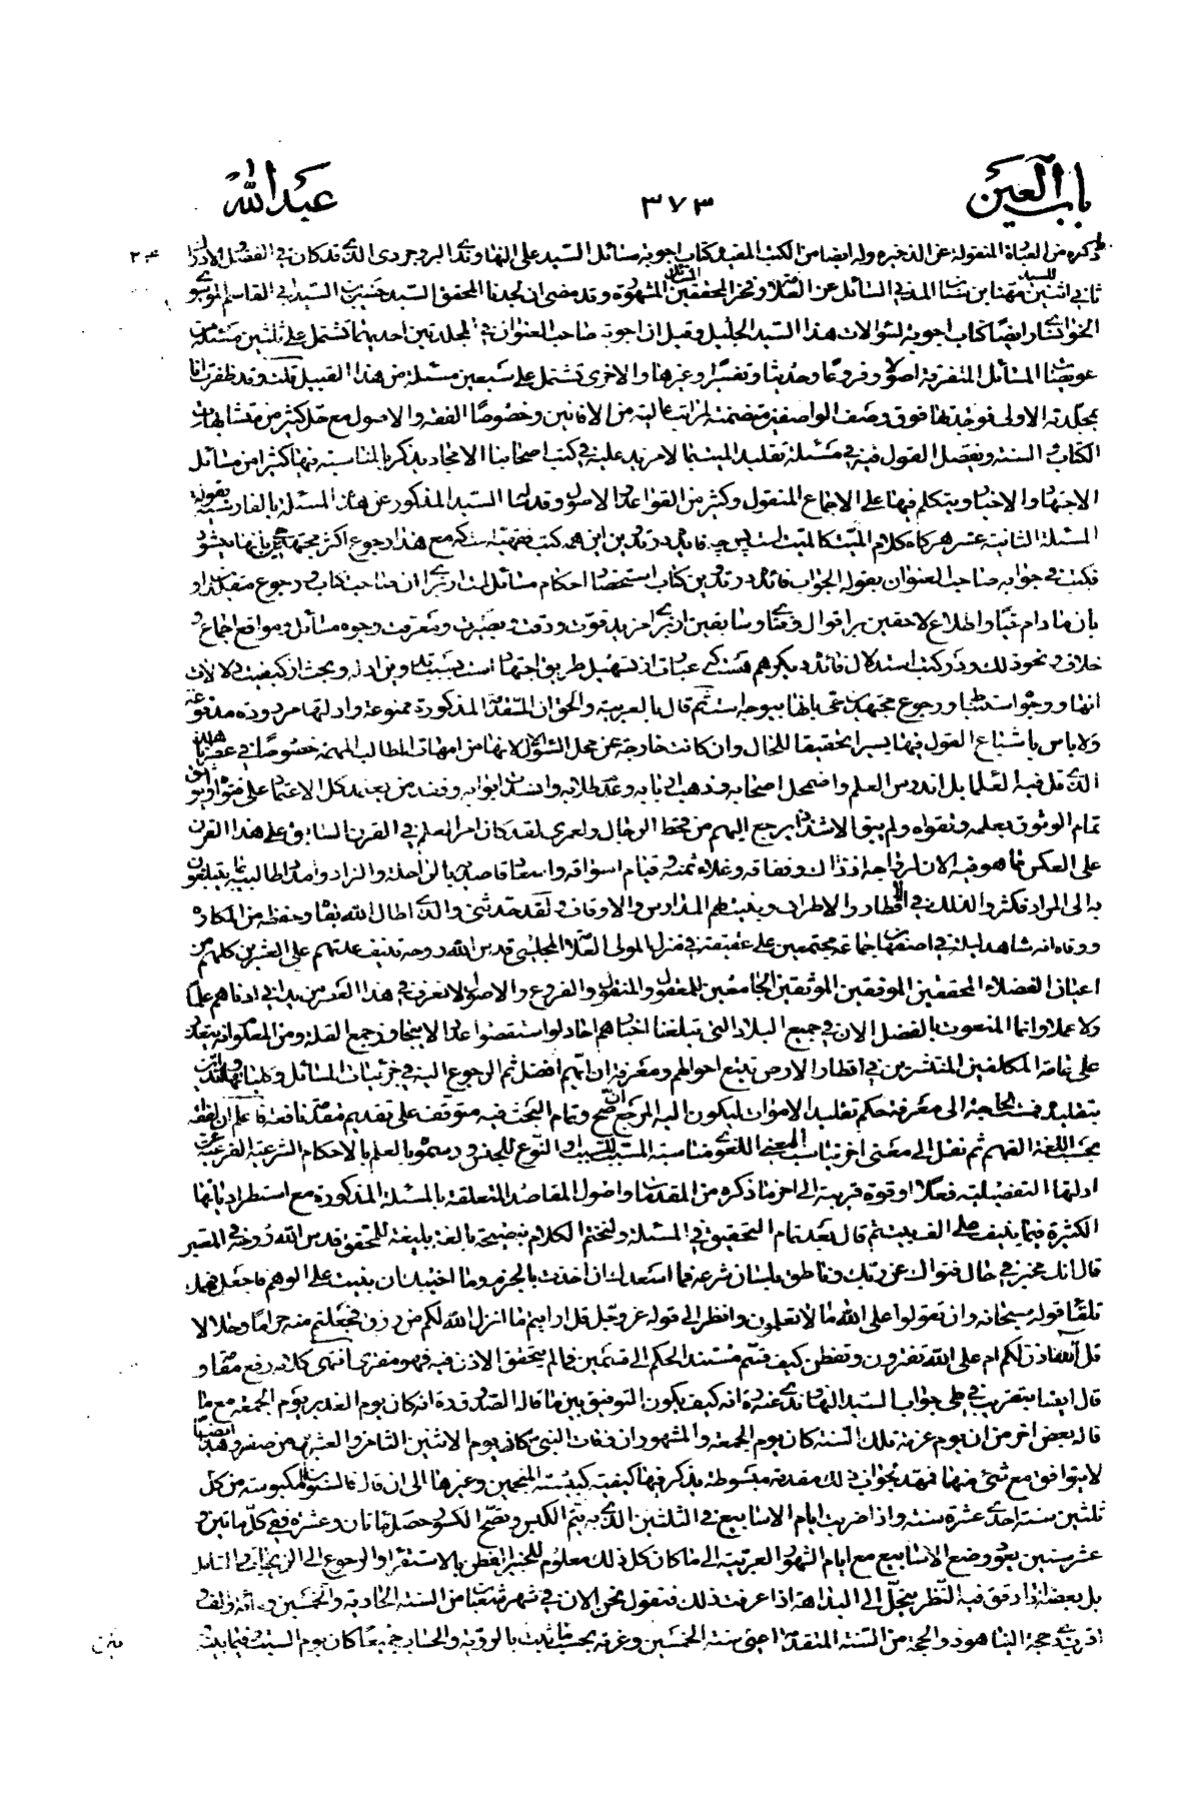 باب العين ٣٧٣ عبدالله
ذكره من العبارة المنقولة عن الذخيره وله ايضا من الكتب المفيدة كتاب اجوبة مسائل السيد على النهاوندى البروجردى الذى قد كان فى الفضل
ثانى اثنين مهنا بن سنان المدنى السائل عن العلامة وفخر المحققين المشهورة وقد مضى ان لجدنا المحقق السيد حسين بن السيد ابى القاسم الموسوى
الخوانسارى ايضا كتاب اجوبة لسؤالات هذا السيد الجليل وقيل ان اجوبة صاحب العنوان فى المجلدتين احديهما تشتمل على ثلثين مسئلة من
عويصات المسائل المتفرقة اصولا وفروعا وحديثا وتفسيرا وغيرها والاخرى تشتمل على سبعين مسئلة من هذا القبيل قلت وقد ظفرت انا
بمجلدته الاولى فوجدتها فوق وصف الواصفين متضمنة لمراتب عالية من الافانين وخصوصا الفقه والاصول مع حل كثير من متشابهات
الكتاب والسنة وبفصل القول فيه فى مسئلة تقليد الميت بما لا مزيد عليه فى كتب اصحابنا الامجاد يذكر بالمناسبة فيها كثيرا من مسائل
الاجتهاد والاخبار ويتكلم فيها على الاجماع المنقول وكثير من القواعد الاصول وقد سئله السيد المذكور عن هذه المسئلة بالفارسية بقوله
المسئلة الثانية عشر هركاه كلام الميت كالميت است پس چه فائده در تدوين اين همه كتب فقهيه است كه مع هذا رجوع اكثر مجتهدين بانها ميشود
فكتب فى جوابه صاحب العنوان بقوله الجواب فائده در تدوين كتاب استحضار احكام مسائل است از براى ان صاحب كتاب ورجوع مقلدان او
بان مادام حيا واطلاع لاحقين بر اقوال وفتاوى سابقين از براى مزيد قوت ودقت وبصيرت ومعرفت وجوه مسائل ومواقع اجماع و
خلاف ونحو ذلك ودر كتب استدلال فائده ديكر هم هست كه عبارت از تسهيل طريق اجتهاد است وبحث از كيفيت دلالات
انها ووجوه استنباط ورجوع مجتهدين حى بانها بوجه است ثم قال بالعربية والحق ان المقدمة المذكورة ممنوعة وادلتها مردودة مدفوعة
ولا باس باشباع القول فيها يسيرا تحقيقا للحال وان كانت خارجة عن محل السؤال لانها من امهات المطالب المهمة خصوصا فى عصرنا هذا
الذى قل فيه العلماء بل اندرس العلم واضمحل اصحابه وذهب اربابه وعدم طلابه وانسدت ابوابه وفقد من يعتمد كل الاعتماد على فتواه ويوثق
تمام الوثوق بعلمه وتقواه ولم يبق الا شذاذ يرجع اليهم من قحط الرجال ولعمرى لقد كان امر العلم فى القرن السابق على هذا القرن
على العكس مما هو فيه الان لرواجه اذ ذاك ونفاقه وغلاء ثمنه وقيام اسواقه واسعاف قاصديه بالراحلة والزاد وامداد طالبيه بما يتبلغون
به الى المراد فكثروا لذلك فى الاقطار والاطراف وبنيت لهم المدارس والاوقاف ولقد حدثنى والدى اطال الله بقاه وحفظه من المكاره
ووقاه انه شاهد ليلة فى اصفهان جماعة مجتمعين على عقيقة فى منزل المولى العلامة المجلسى قدس الله روحه تنيف عدتهم على العشرين كلهم من
اعيان الفضلاء المحققين الموثقين الجامعين للمعقول والمنقول والفروع والاصول لا نعرف فى هذا القدر من يدانى ادناهم علما
ولا عملا وانما المنعوت بالفضل الان فى جميع البلاد التى تبلغنا اخبارهم احاد لو استقصوا عدا لا يتجاوز جمع القلة ومن المعلوم انه يتعذر
على عامة المكلفين المنتشرين فى اقطار الارض تتبع احوالهم ومعرفة ان ايهم افضل ثم الرجوع اليه فى جزئيات المسائل
بتقليده فمست الحاجة الى معرفة حكم تقليد الاموات ليكون اليه المرجع ان صح وتمام البحث فيه متوقف على تقديم مقدمة نافعة فاعلم ان الفقه
بحسب اللغة الفهم ثم نقل الى معنى اخر يناسب المعنى اللغوى مناسبة المسبب للسبب او النوع للجنس ورسموه بالعلم بالاحكام الشرعية الفرعية عن
ادلتها التفضيلية فعلا او قوة قريبة الى اخر ما ذكره من المقدمات واصول المقاصد المتعلقة بالمسئلة المذكورة مع استطراداتها
الكثيرة فيما ينيف على الف بيت ثم قال بعد تمام التحقيق فى المسئلة ولنختم الكلام بنصيحة بالغة بليغة للمحقق قدس الله روحه فى المعتبر
قال انك مخبر فى حال فتواك عن ربك وناطق بلسان شرعه فما اسعدك ان اخذت بالجزم وما اخيبك ان بنيت على الوهم فاجعل فهمك
تلقاء قوله سبحانه وان تقولوا على الله ما لا تعلمون وانظر الى قوله عز وجل قل ارايتم ما انزل الله لكم من رزق فجعلتم منه حراما وحلالا
قل آلله اذن لكم ام على الله تفترون وتفطن كيف قسم مستند الحكم الى قسمين فما لم يتحقق الاذن فيه فهو مفترى انتهى كلامه رفع مقامه و
قال ايضا بتقريب فى طى جواب السيد النهاوندى عنه انه كيف يكون التوفيق بين ما قاله الصدوق ره انه كان يوم الغدير يوم الجمعة مع ما
قاله بعض اخر من ان يوم عرفة تلك السنة كان يوم الجمعة والمشهور ان وفات النبى ص كان يوم الاثنين الثامن والعشرين من صفر وهذا ايضا
لا يتوافق مع شئ منها فمهد لجوابه فى ذلك مقدمة مبسوطة يذكر فيها كيفية كبيسة المنجمين وغيرها الى ان قال فالسنون المكبوسة من كل
ثلثين سنة احدى عشرة سنة واذا ضربت ايام الاسابيع فى الثلثين الذى به يتم الكبس ويصح الكسور حصل مائتان وعشرة ففى كل مائتين و
عشر سنين يعود وضع الاسابيع مع ايام الشهور العربية الى ما كان كل ذلك معلوم للخبير الفطن بالاستقراء والرجوع الى الزيجات والتامل
بل بعضه اذا دقق فيه النظر ينجل الى البداهة اذا عرفت ذلك فنقول نحن الان فى شهر شعبان من السنة الحادية والخمسين ومائة والف و
اقرب ذى حجة الينا هو ذو الحجة من السنة المتقدمة اعنى سنة الخمسين وغرته بحسب ما ثبت بالرؤية والحساب جميعا كان يوم السبت فيما بيننا